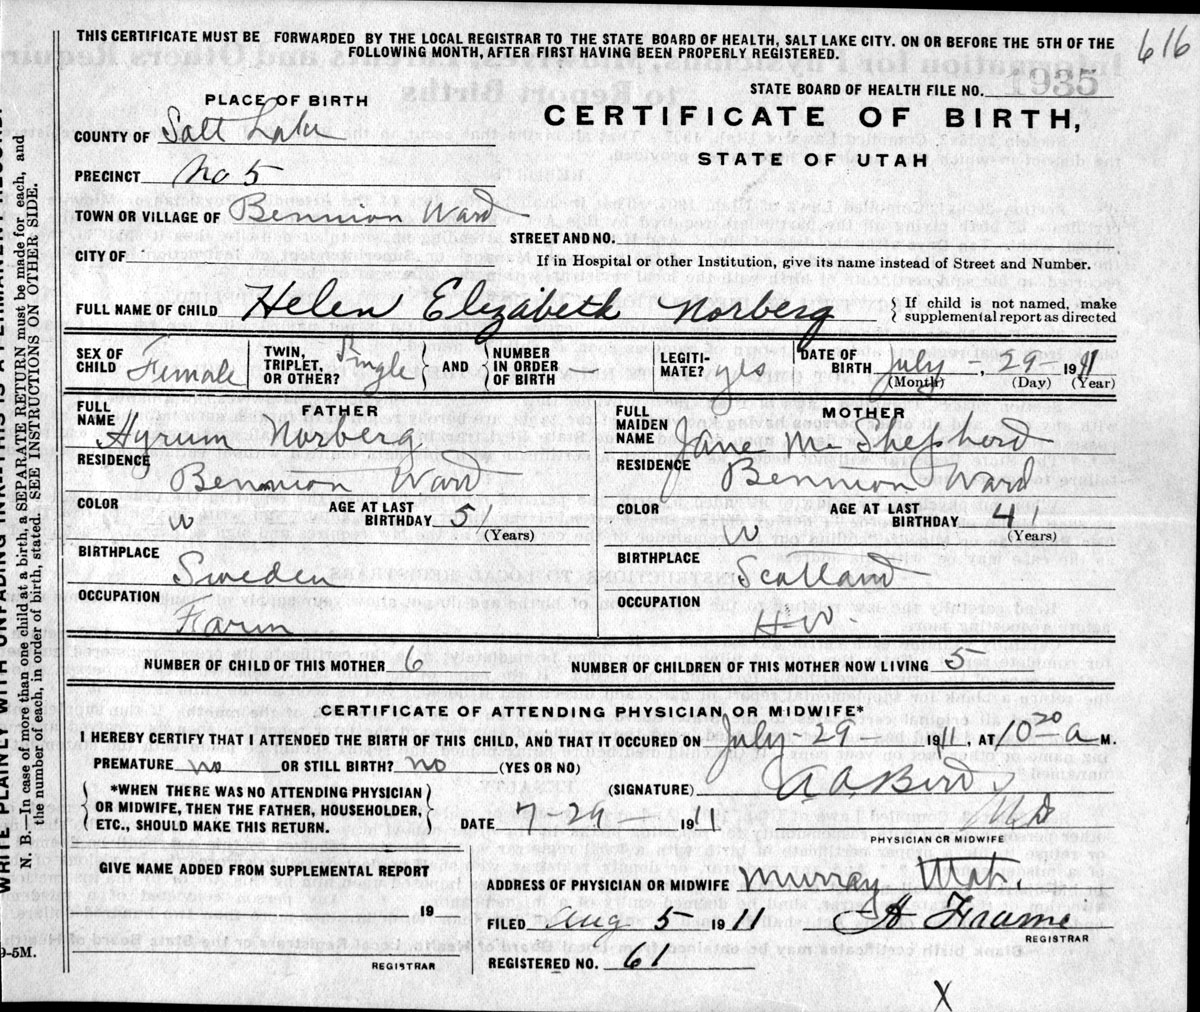 THIS CERTIFICATE MUST BE FORWARDED BY THE LOCAL REGISTRAR TO THE STATE BOARD OF HEALTH, SALT LAKE CITY. ON OR BEFORE THE 5TH OF THE
FOLLOWING MONTH, AFTER FIRST HAVING BEEN PROPERLY REGISTERED.
616
1935
STATE BOARD OF HEALTH FILE NO.
PLACE OF BIRTH
CERTIFICATE OF BIRTH,
STATE OF UTAH
COUNTY OF Salt Lake
PRECINCT No 5
TOWN OR VILLAGE OF Bennion Ward
STREET AND NO.
CITY OF
If in Hospital or other Institution, give its name instead of Street and Number.
FULL NAME OF CHILD Helen Elizabeth Norberg
If child is not named, make
supplemental report as directed
SEX OF CHILD Female
TWIN, TRIPLET, OR OTHER? Single
AND
NUMBER IN ORDER OF BIRTH
LEGITI-MATE? yes
DATE OF BIRTH July 29 1911
(Month) (Day) (Year)
FATHER
FULL NAME Hyrum Norberg
RESIDENCE
Bennion Ward
COLOR W
AGE AT LAST BIRTHDAY 51
(Years)
BIRTHPLACE
Sweden
OCCUPATION
Farm
MOTHER
FULL MAIDEN NAME Jane Mc Shepherd
RESIDENCE
Bennion Ward
COLOR W
AGE AT LAST BIRTHDAY 41
(Years)
BIRTHPLACE
Scotland
OCCUPATION
H-W.
NUMBER OF CHILD OF THIS MOTHER 6
NUMBER OF CHILDREN OF THIS MOTHER NOW LIVING 5
CERTIFICATE OF ATTENDING PHYSICIAN OR MIDWIFE*
I HEREBY CERTIFY THAT I ATTENDED THE BIRTH OF THIS CHILD, AND THAT IT OCCURED ON July 29 1911, AT 10 20 a M.
PREMATURE no OR STILL BIRTH? no (YES OR NO)
(SIGNATURE) A. A. Bird
*WHEN THERE WAS NO ATTENDING PHYSICIAN
OR MIDWIFE, THEN THE FATHER, HOUSEHOLDER,
ETC., SHOULD MAKE THIS RETURN.
DATE 7-29 1911
MD
PHYSICIAN OR MIDWIFE
GIVE NAME ADDED FROM SUPPLEMENTAL REPORT
19
REGISTRAR
ADDRESS OF PHYSICIAN OR MIDWIFE Murray Utah.
FILED Aug 5 1911
REGISTRAR
REGISTERED NO. 61
X
N. B.—In case of more than one child at a birth, a SEPARATE RETURN must be made for each, and
the number of each, in order of birth, stated. SEE INSTRUCTIONS ON OTHER SIDE.
9-5M.